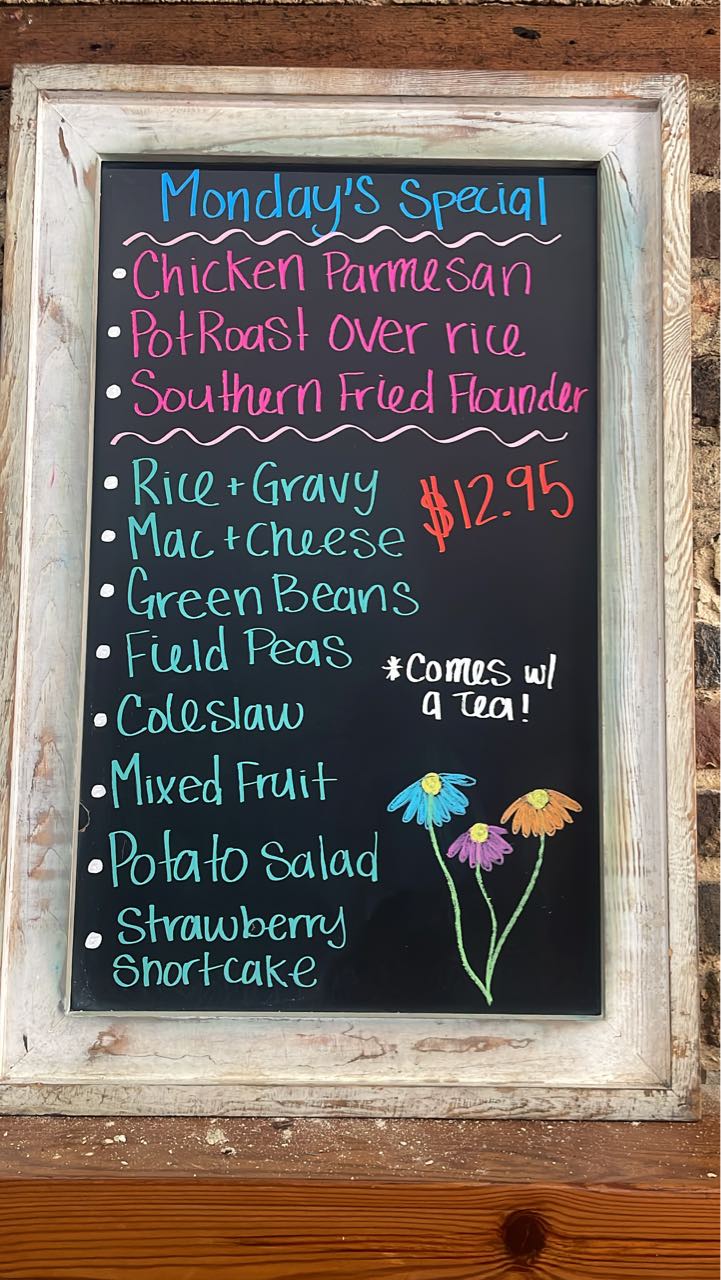 Monday's Special
• Chicken Parmesan
• Pot Roast over rice
• Southern Fried Flounder
• Rice + Gravy
$12.95
• Mac + Cheese
• Green Beans
• Field Peas
*Comes w/
a Tea!
• Coleslaw
• Mixed Fruit
• Potato Salad
• Strawberry
Shortcake